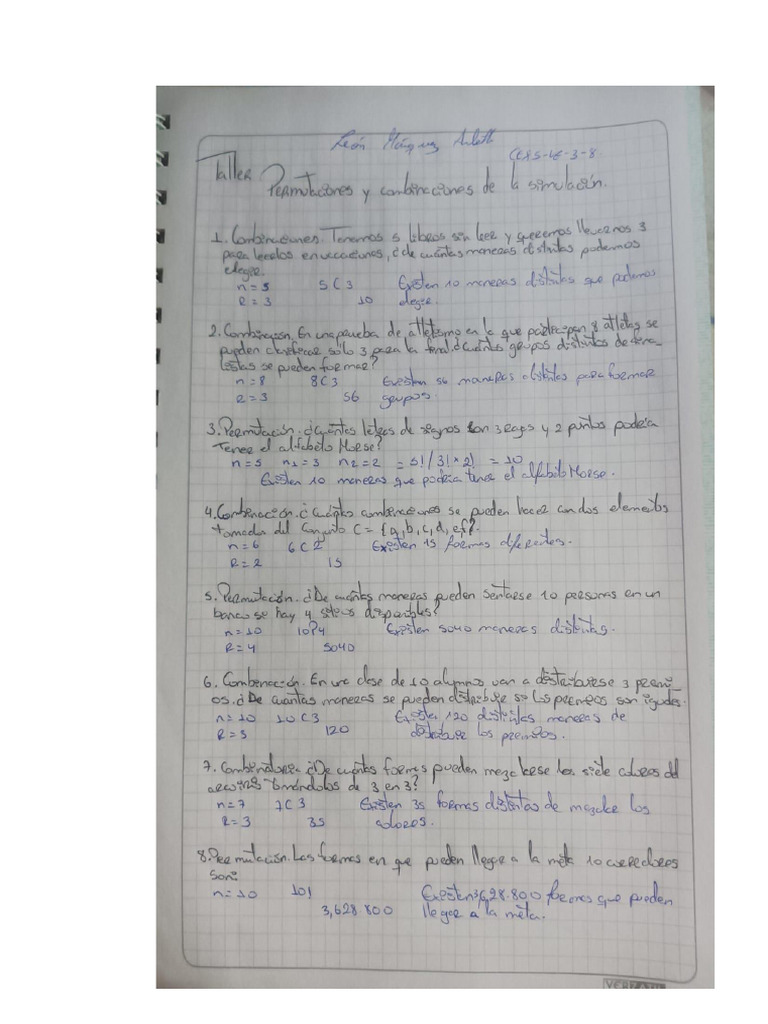 León Márquez Arleth
Taller
Permutaciones y combinaciones de la simulación.
1. Combinaciones. Tenemos 5 libros sin leer y queremos llevarnos 3
para leerlos en vacaciones, ¿de cuántas maneras distintas podemos
elegir.
n=5 5C3 Existen 10 maneras distintas que podemos
R=3 10 elegir.
2. Combinación. En una prueba de atletismo en la que participan 8 atletas se
pueden clasificar solo 3 para la final. ¿Cuántos grupos distintos de fina
listas se pueden formar?
n=8 8C3 Existen 56 maneras distintas para formar
R=3 56 grupos.
3. Permutación. ¿Cuántas letras de signos con 3 rayas y 2 puntos podría
tener el alfabeto Morse?
n=5 n1=3 n2=2 =5!/3!*2! =10
Existen 10 maneras que podría tener el alfabeto Morse.
4. Combinación. ¿Cuántas combinaciones se pueden hacer con dos elementos
tomados del Conjunto C= {a,b,c,d,e,f}.
n=6 6C2 Existen 15 formas diferentes.
R=2 15
5. Permutación. ¿De cuántas maneras pueden sentarse 10 personas en un
banco se hay 4 disponibles?
n=10 10P4 Existen 5040 maneras distintas.
R=4 5040
6. Combinación. En una clase de 10 alumnos van a distribuirse 3 premi_
os. ¿De cuántas maneras se pueden distribuir si los premios son iguales.
n=10 10C3 120 distintas maneras de
R=3 120 distribuir los premios.
7. ¿De cuántas formas pueden mezclarse los siete colores del
arcoiris tomándolos de 3 en 3?
n=7 7C3 Existen 35 formas distintas de mezclar los
R=3 35 colores.
8. Permutación. Las formas en que pueden llegar a la meta 10 corredores
son:
n=10 10! Existen 3,628.800 formas que pueden
3,628.800 llegar a la meta.